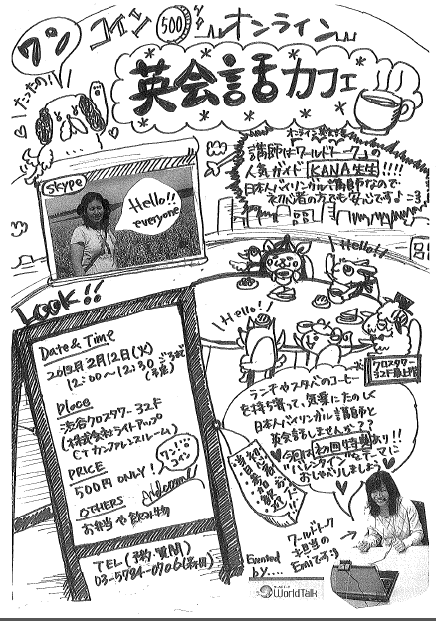 ワン
コイン
500
オンライン
英会話カフェ
たったの!
オンライン英会話
講師はワールドトークの
人気ガイド KANA先生!!!!
日本人バイリンガル講師なので
初心者の方でも安心です♪
Skype
Hello!!
everyone
Look!!
Hello!!
Hello!
クロスタワー
32F最上階
Date & Time
2013年2月12日(火)
12:00~12:50ごろまで
(予定)
place
渋谷クロスタワー32F
(株式会社ライトアップ
CTカンファレンスルーム)
PRICE
500円 ONLY!
ワン
コイン
Welcome!!
OTHERS
お弁当や飲み物
TEL(予約・質問)
03-5784-0706
ランチやスタバのコーヒー
を持ち寄って、気楽にたのしく
日本人バイリンガル講師と
英会話しませんか??
今回は初回特集あり!!
"バレンタイン"をテーマに
おしゃべりしましょう
ワールドトーク
担当の
Emiです
Evented
by....
WorldTalk